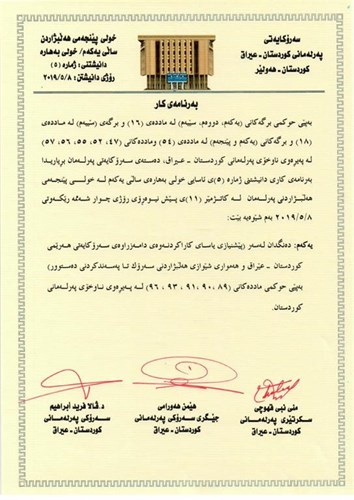 سەرۆکایەتی
پەرلەمانی کوردستان - عیراق
کوردستان - هەولێر
خولی پێنجەمی هەڵبژاردن
ساڵی یەکەم/ خولی بەهارە
دانیشتنی: ژمارە (٥)
رۆژی دانیشتن: ٢٠١٩/٥/٨
بەرنامەی کار
بەپێی حوکمی برگەکانی (یەکەم، دووەم، سێیەم) لە ماددەی (١٦) و برگەی (سێیەم) لە ماددەی
(١٨) و برگەکانی (یەکەم و پێنجەم) لە ماددەی (٥٤) وماددەکانی (٤٧، ٥٢، ٥٥، ٥٦، ٥٧)
لە پەیرەوی ناوخۆی پەرلەمانی کوردستان - عیراق، دەستەی سەرۆکایەتی پەرلەمان بڕیاریدا
بەرنامەی کاری دانیشتنی ژمارە (٥)ی ئاسایی خولی بەهارەی ساڵی یەکەم لە خولی پێنجەمی
هەڵبژاردنی پەرلەمان لە کاتژمێر (١١)ی پێش نیوەڕۆی رۆژی چوار شەممە رێکەوتی
٢٠١٩/٥/٨ بەم شێوەیە بێت:
یەکەم: دەنگدان لەسەر (پێشنیازی یاسای کاراکردنەوەی دامەزراوەی سەرۆکایەتی هەرێمی
کوردستان - عێراق و هەمواری شێوازی هەڵبژاردنی سەرۆک تا پەسەندکردنی دەستوور)
بەپێی حوکمی ماددەکانی (٨٩، ٩٠، ٩١، ٩٣، ٩٦) لە پەیرەوی ناوخۆی پەرلەمانی
کوردستان.
منی نبی قهوچی
سکرتێری پەرلەمانی
کوردستان - عیراق
هێمن هەورامی
جێگری سەرۆکی پەرلەمانی
کوردستان - عیراق
د. ڤالا فرید ابراهیم
سەرۆکی پەرلەمانی
کوردستان - عیراق